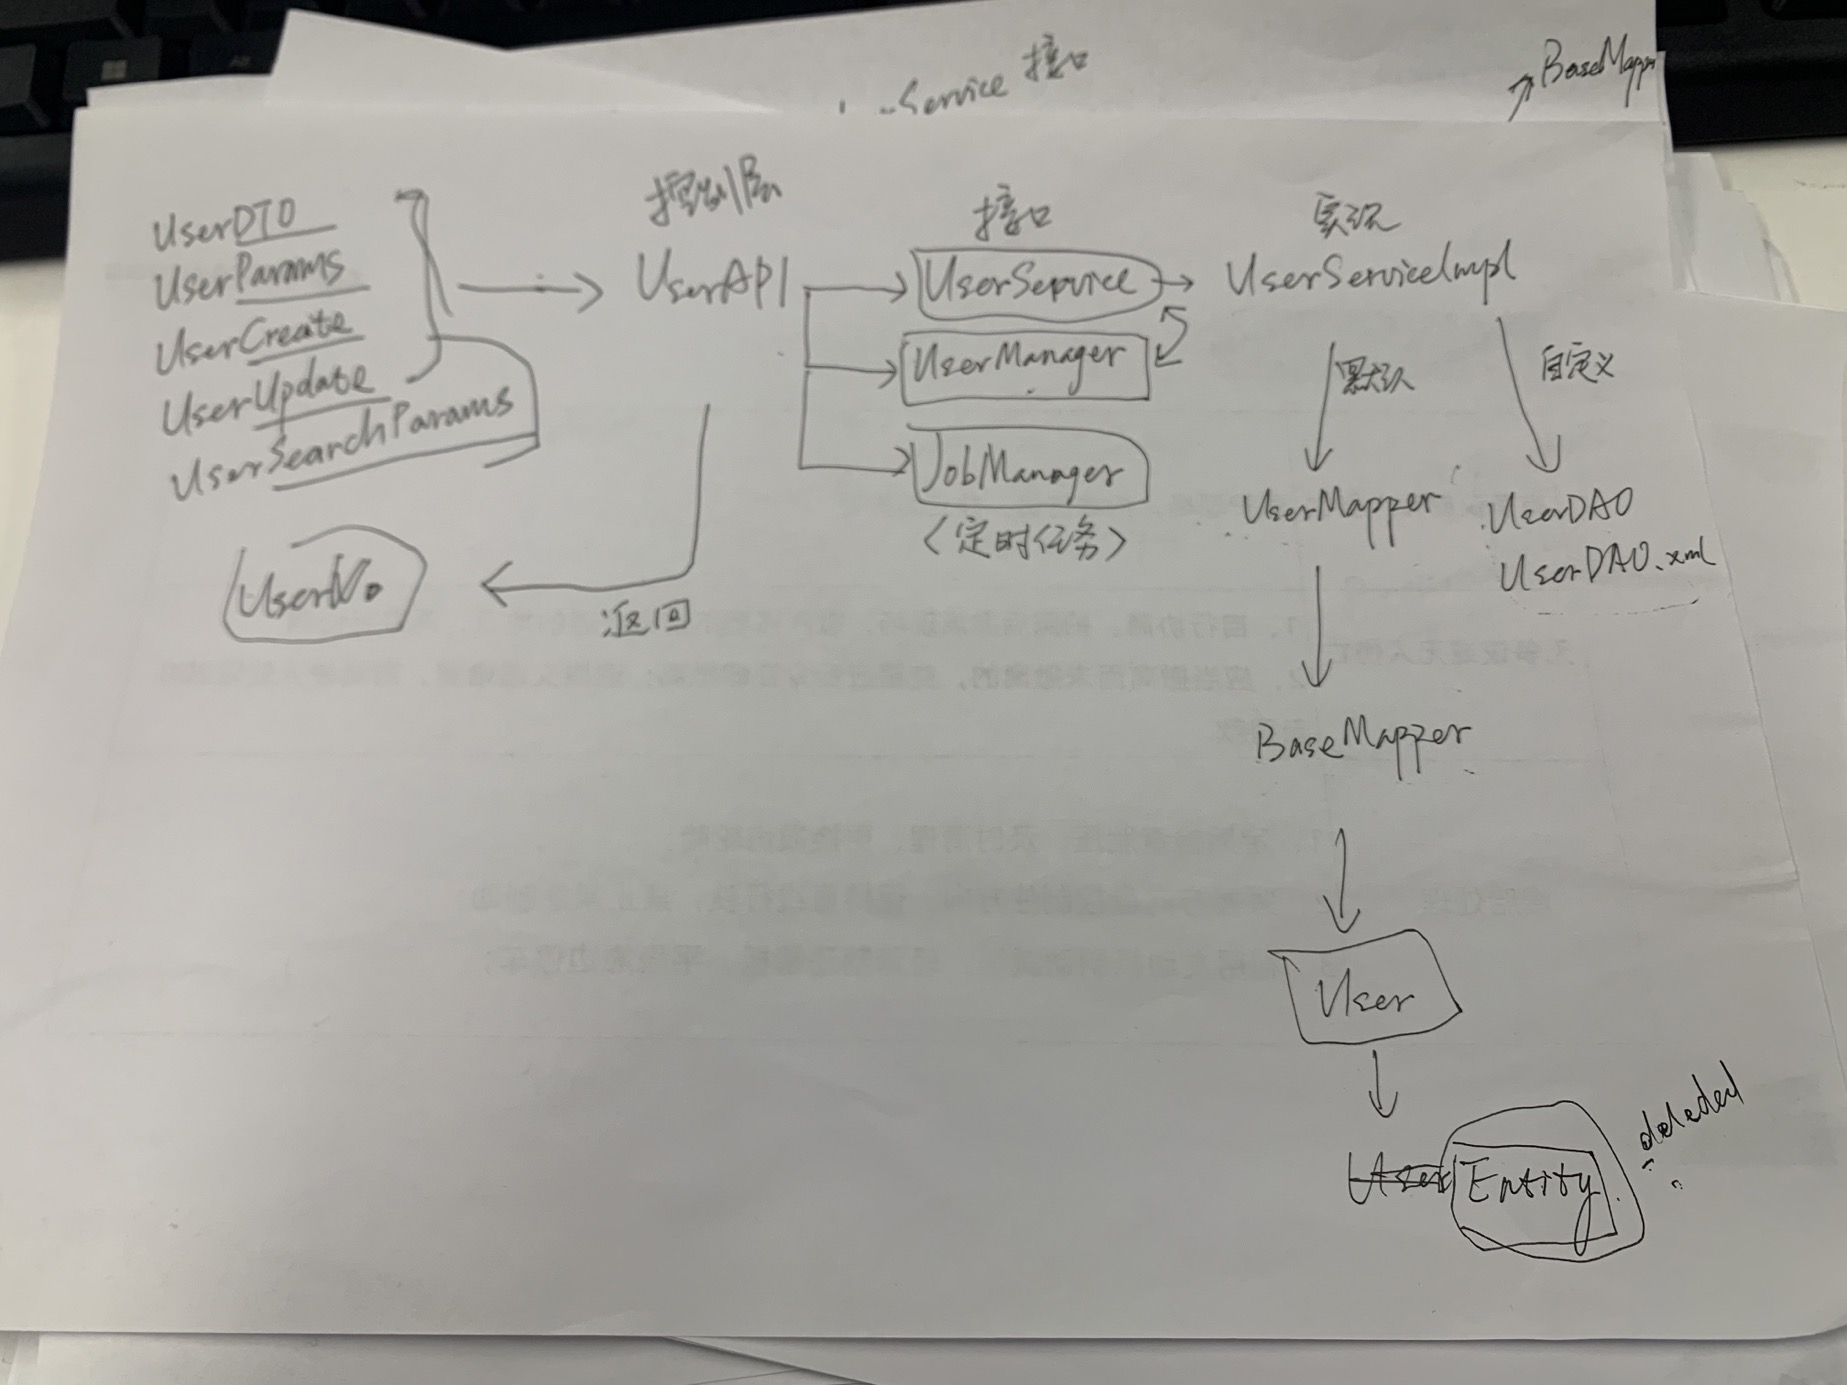 Service 接口
BaseMapper
控制层
接口
实现
UserDTO
UserParams
UserCreate
UserUpdate
UserSearchParams
UserAPI
UserService
UserServiceImpl
UserManager
JobManager
<定时任务>
默认
自定义
UserMapper
UserDAO
UserDAO.xml
UserVo
返回
BaseMapper
User
User Entity
deleded